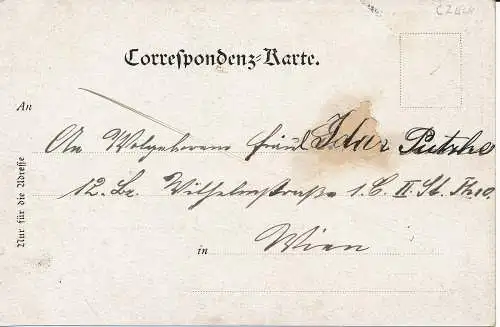 Correspondenz=Karte.
An
An Wolgeborene Fräul. Ida Putzke
12. Bz. Wilhelmstraße 1. C II. St. Th 10.
in Wien
Nur für die Adresse